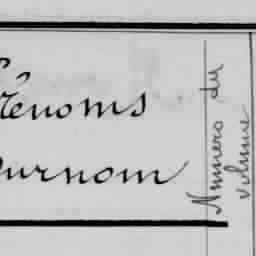 Prénoms
Surnom
Numero du
volume